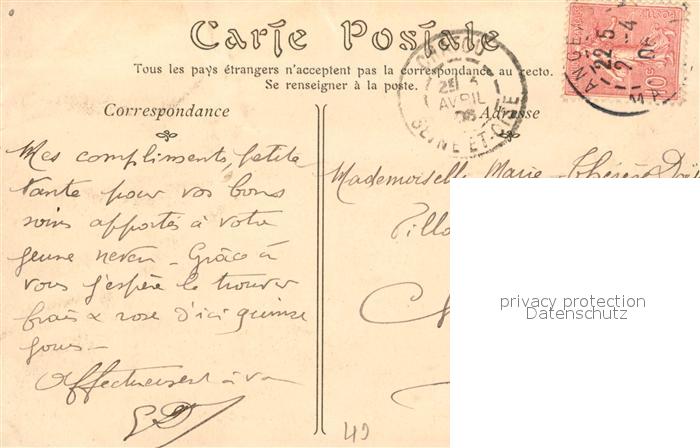 Carte Postale
Tous les pays étrangers n'acceptent pas la correspondance au recto.
Se renseigner à la poste.
Correspondance
Adresse
Mes compliments, petite
tante pour vos bons
soins apportés à votre
jeune neveu - Grâce à
vous j'espère le trouver
frais & rose d'ici quinze
jours -
Affectueusement à vous
Mademoiselle Marie-Thérèse
Villa
25
AVRIL
06
SEINE ET OISE
ANGE
22 5
2-4
06
10c
privacy protection
Datenschutz
49